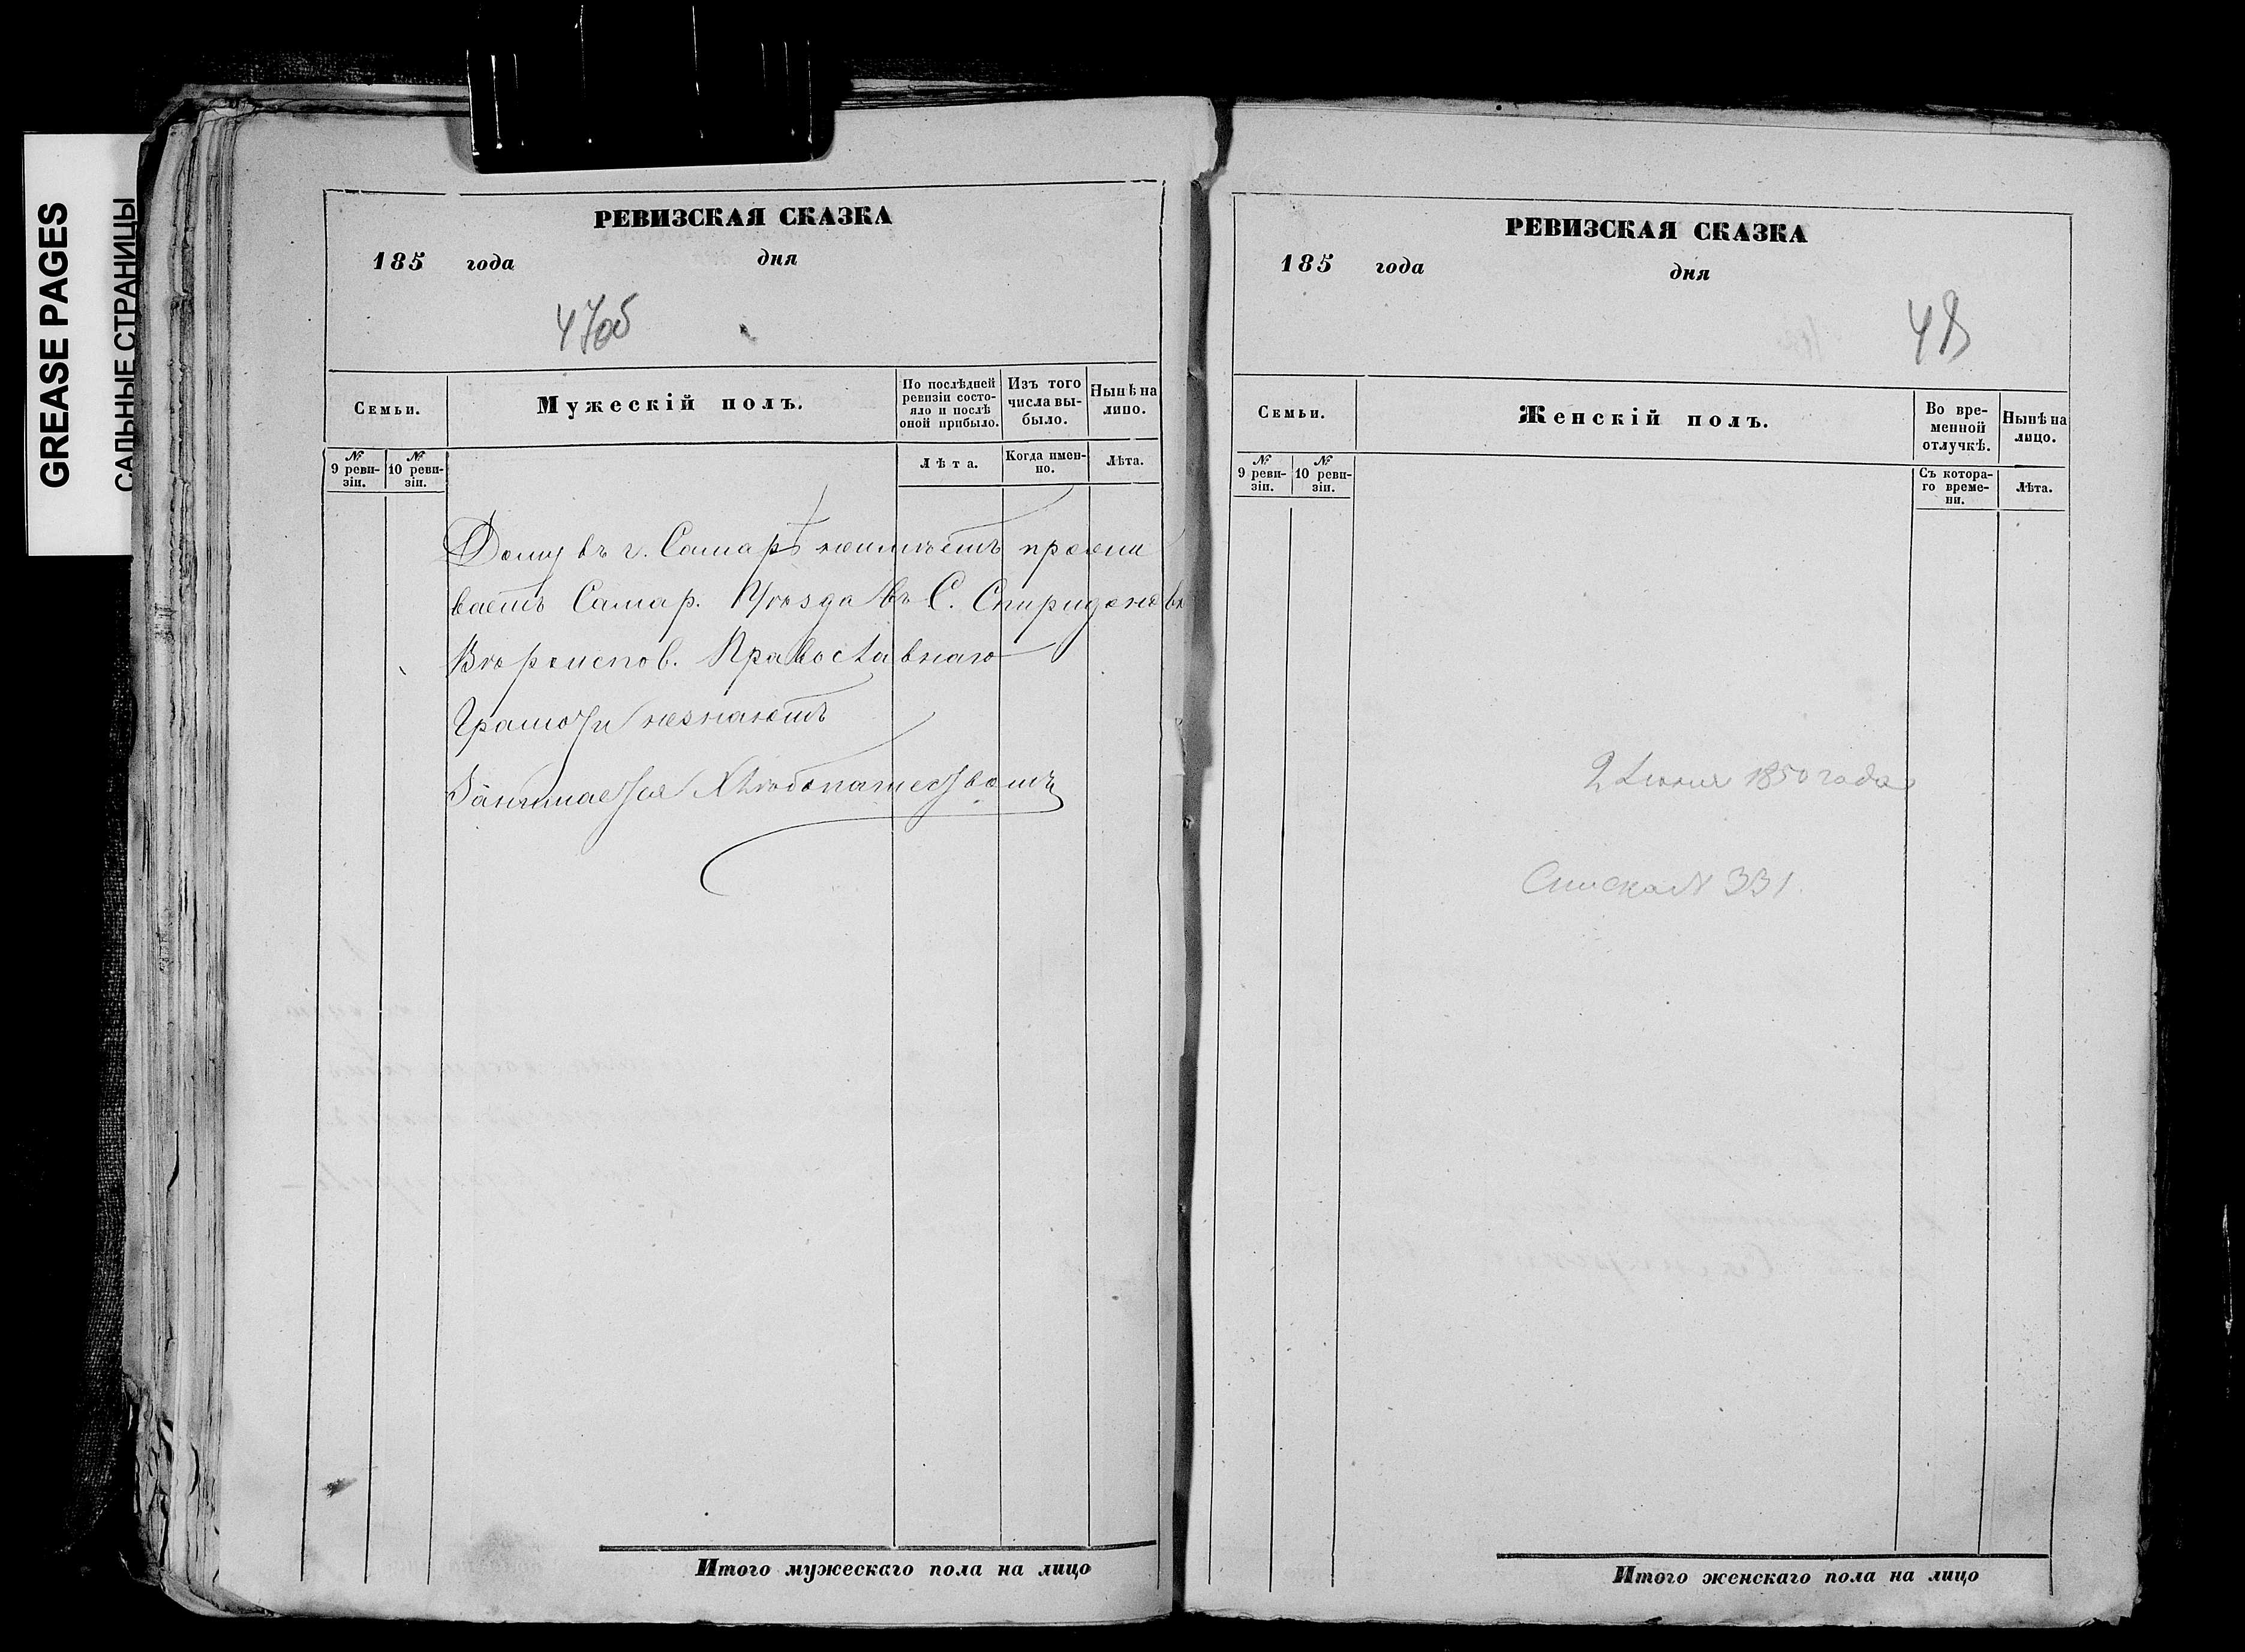 GREASE PAGES
САЛЬНЫЕ СТРАНИЦЫ
РЕВИЗСКАЯ СКАЗКА
185 года дня
47об
Семьи.
Мужескій полъ.
По послѣдней ревизіи состояло и послѣ оной прибыло.
Изъ того числа выбыло.
Нынѣ на лицо.
№ 9 ревизіи.
№ 10 ревизіи.
Лѣта.
Когда именно.
Лѣта.
Дому въ г. Самарѣ неимѣетъ прожи
ваетъ Самар. Уѣзда въ С. Спиридоновк
Вѣроиспов. Православнаго
Грамоти незнаютъ
Занимается Хлѣбопашествомъ
Итого мужескаго пола на лицо
РЕВИЗСКАЯ СКАЗКА
185 года дня
48
Семьи.
Женскій полъ.
Во временной отлучкѣ.
Нынѣ на лицо.
№ 9 ревизіи.
№ 10 ревизіи.
Съ котораго времени.
Лѣта.
1850 года
331.
Итого женскаго пола на лицо